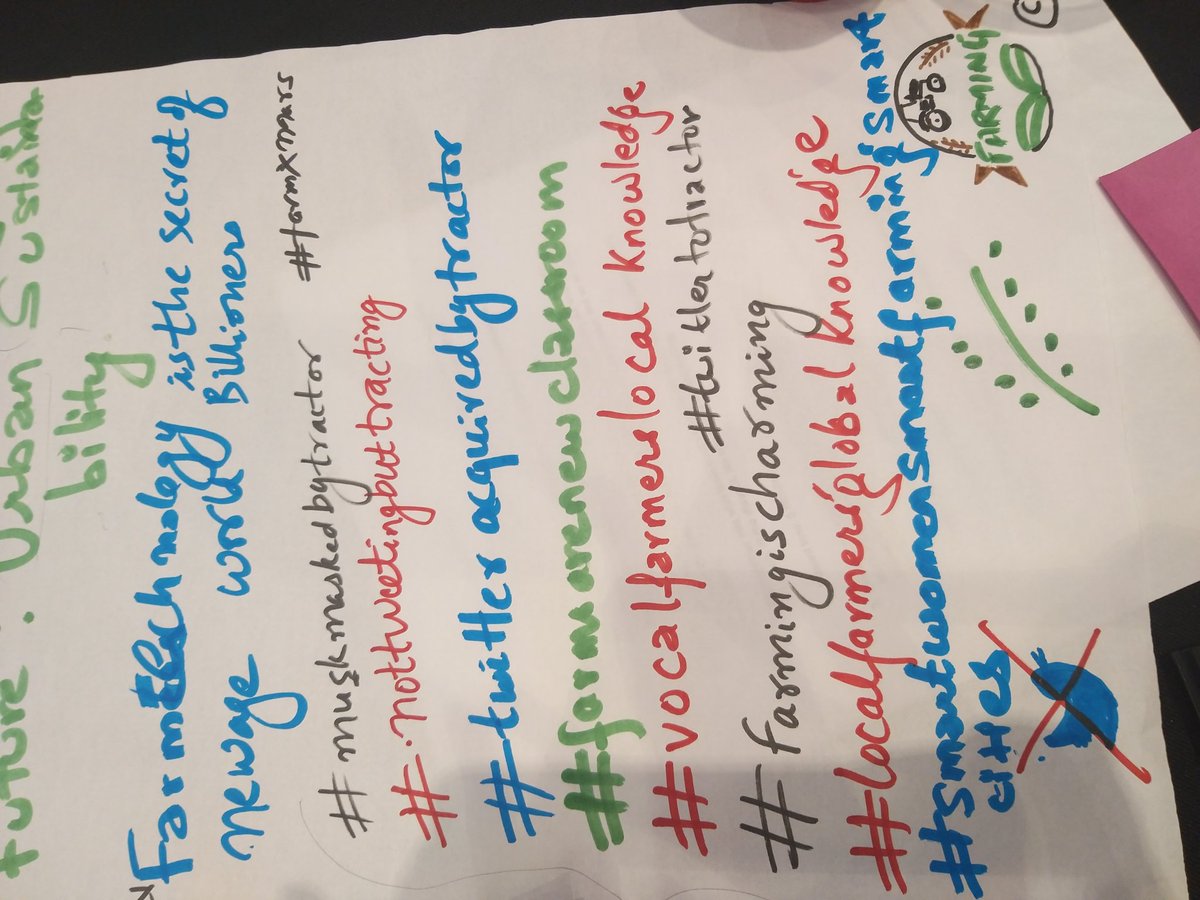 future : Urban Sustaina
bility
Farm Technology is the secret of
newage world Billioners
#muskmaskedbytractor #farmxmars
#nottweetingbuttracting
#twitteracquiredbytractor
#farmsarenewclassroom
#vocalfarmerslocalknowledge
#twittertotractor
#farmingischarming
#localfarmersglobalknowledge
#Smartwomensmartfarmingsmart
cities
FARMING
C